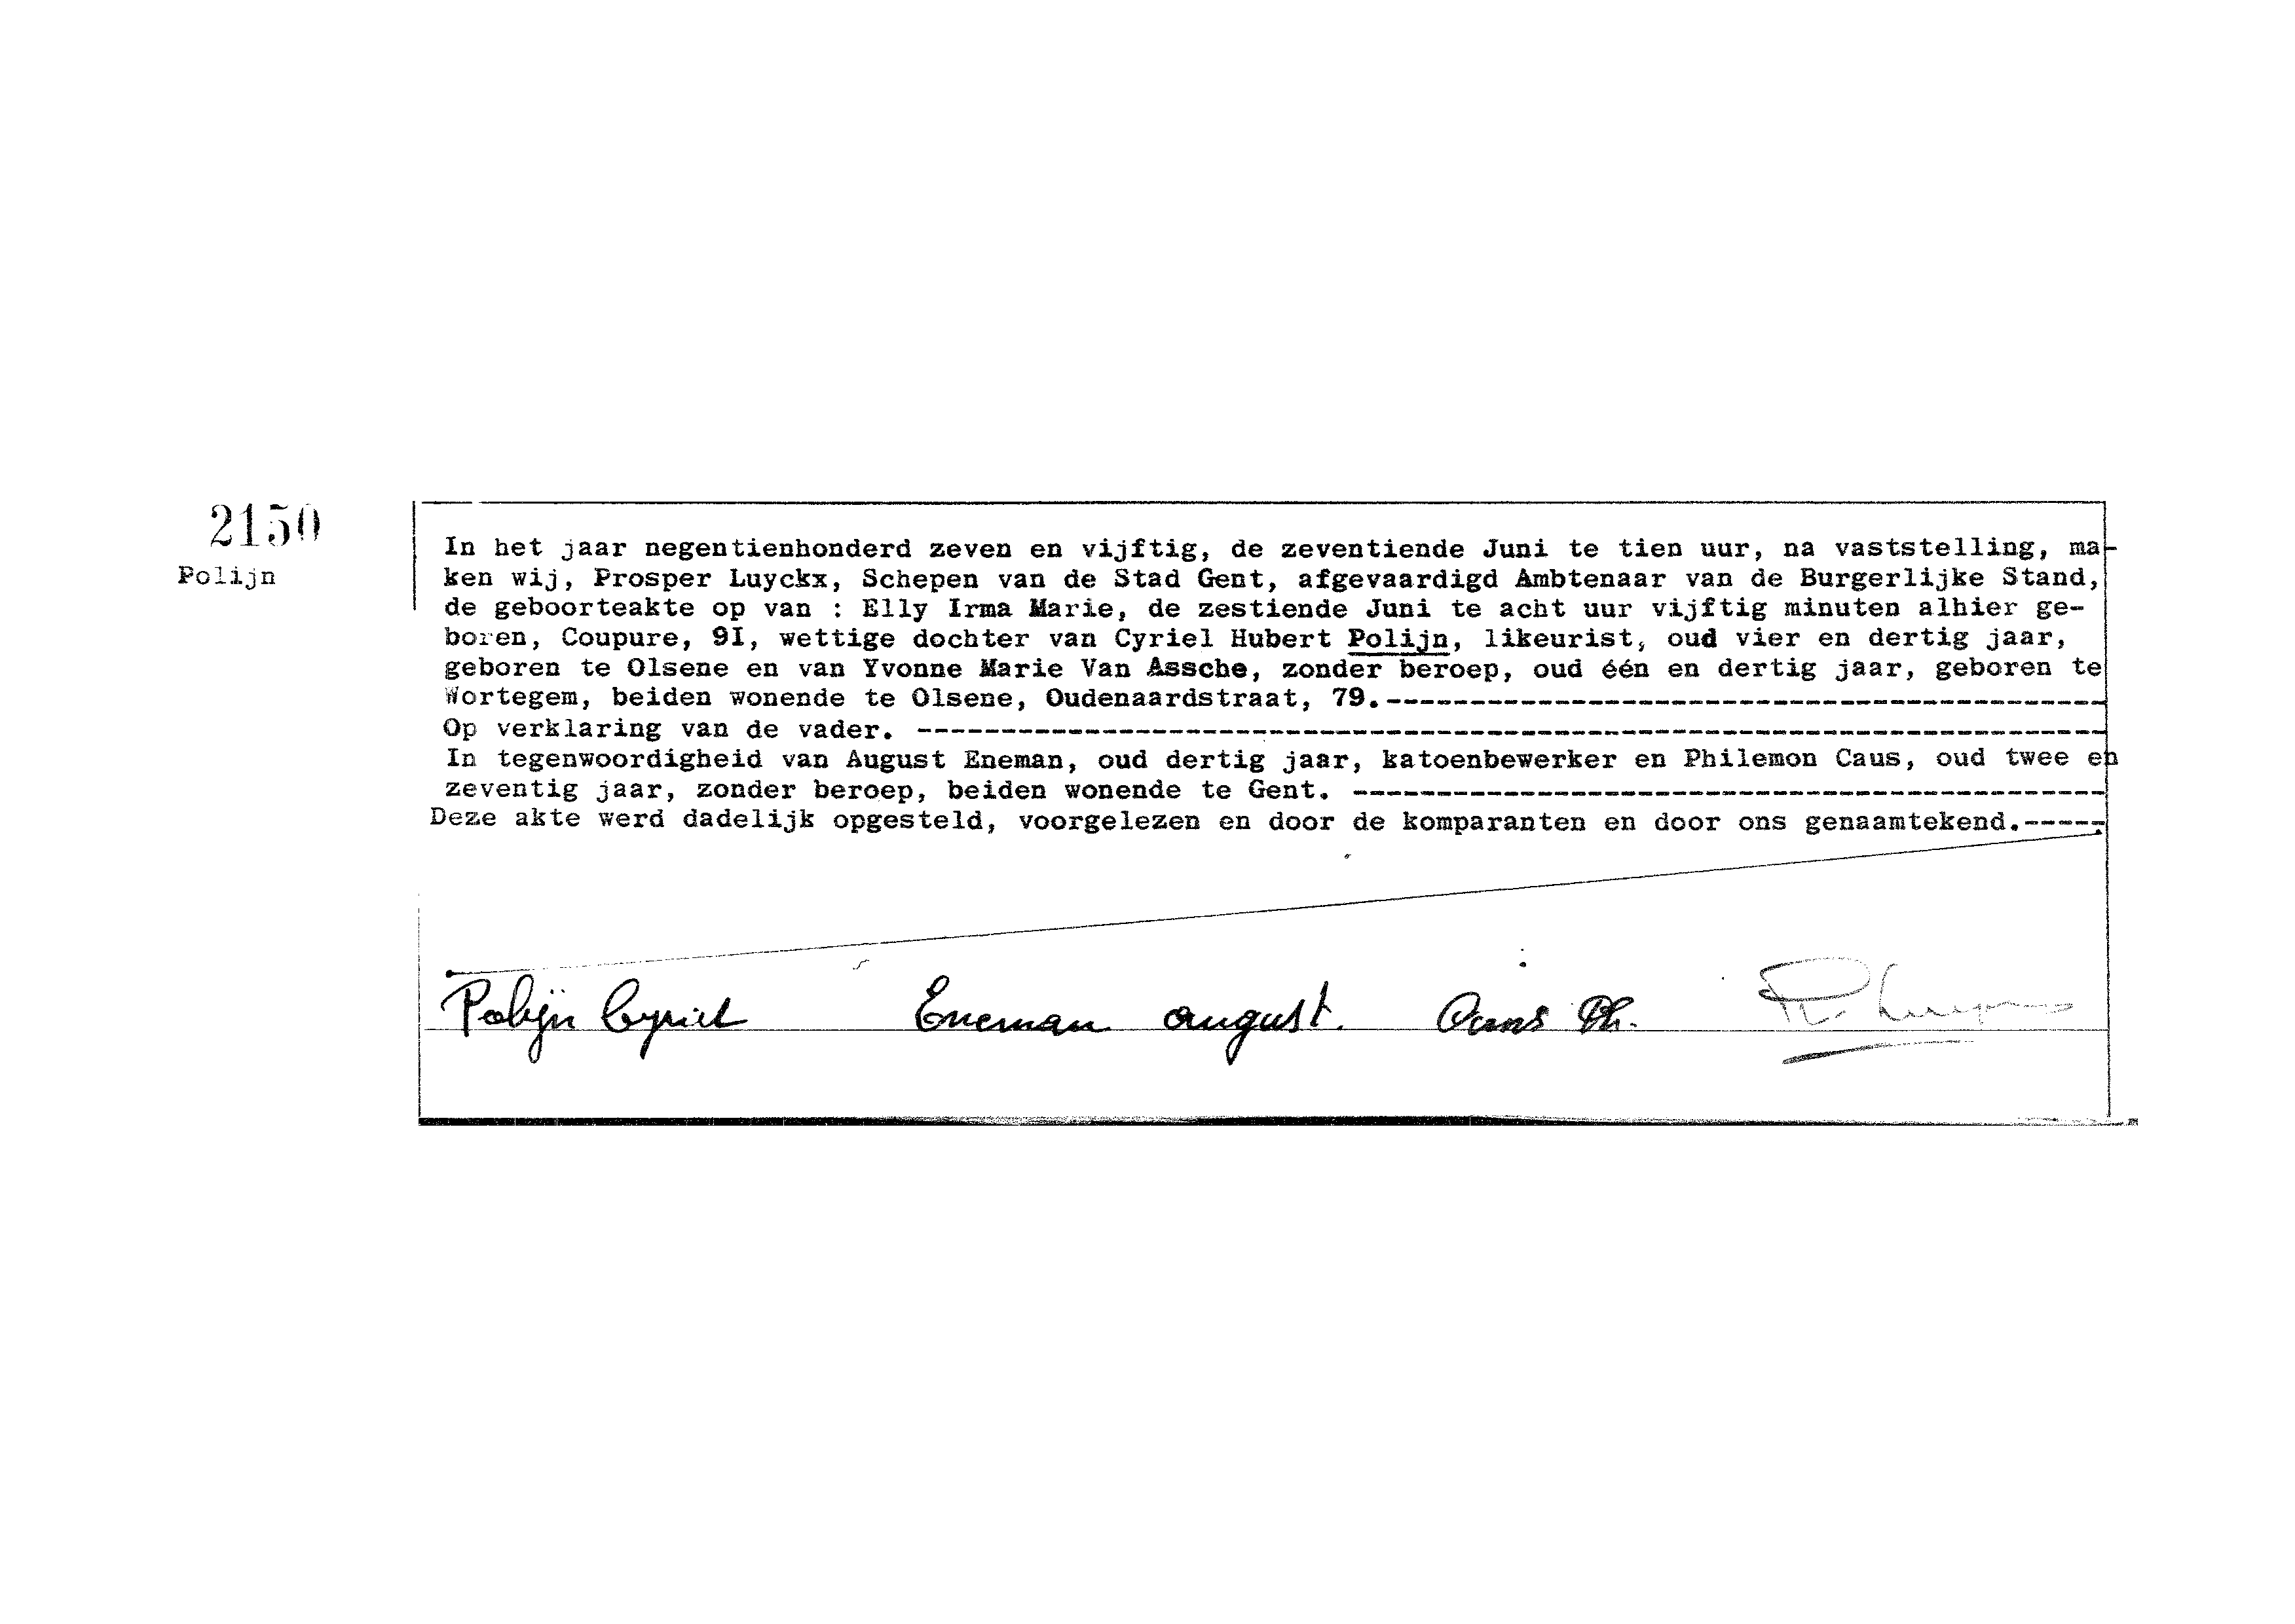 2150
Polijn
In het jaar negentienhonderd zeven en vijftig, de zeventiende Juni te tien uur, na vaststelling, ma-
ken wij, Prosper Luyckx, Schepen van de Stad Gent, afgevaardigd Ambtenaar van de Burgerlijke Stand,
de geboorteakte op van : Elly Irma Marie, de zestiende Juni te acht uur vijftig minuten alhier ge-
boren, Coupure, 9I, wettige dochter van Cyriel Hubert Polijn, likeurist, oud vier en dertig jaar,
geboren te Olsene en van Yvonne Marie Van Assche, zonder beroep, oud één en dertig jaar, geboren te
Wortegem, beiden wonende te Olsene, Oudenaardstraat, 79.-------------------------------------------
Op verklaring van de vader. -----------------------------------------------------------------------
In tegenwoordigheid van August Eneman, oud dertig jaar, katoenbewerker en Philemon Caus, oud twee en
zeventig jaar, zonder beroep, beiden wonende te Gent. ---------------------------------------------
Deze akte werd dadelijk opgesteld, voorgelezen en door de komparanten en door ons genaamtekend.-----
Polijn Cyriel Eneman august. Caus Ph.